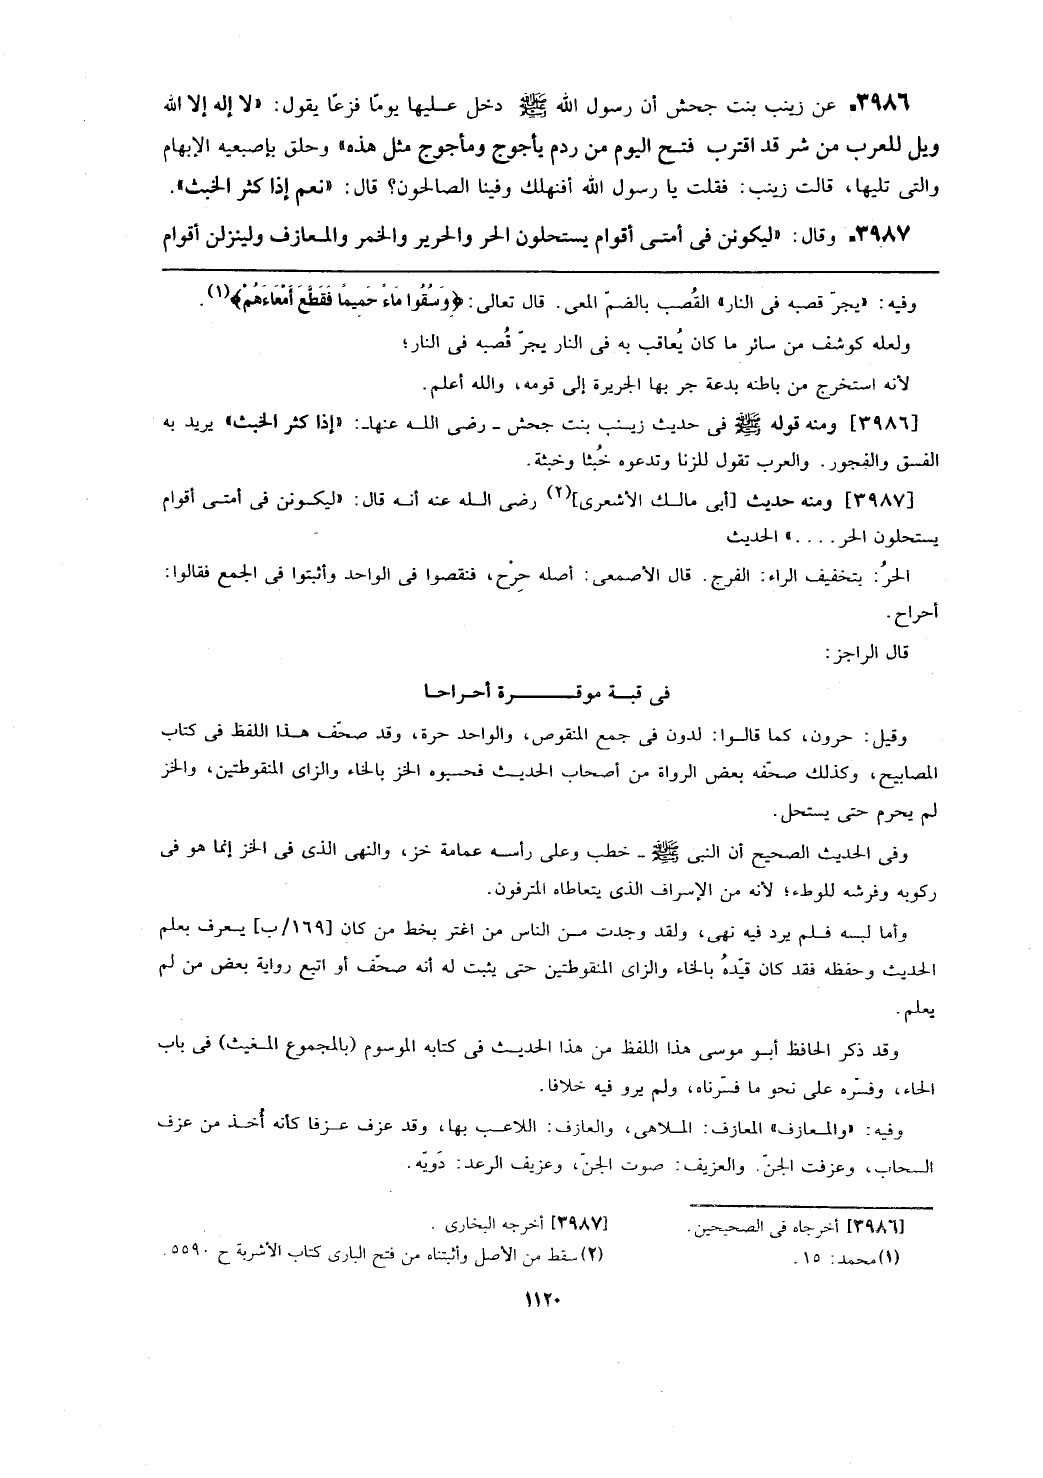 ٣٩٨٦. عن زينب بنت جحش أن رسول الله ﷺ دخل عليها يومًا فزعًا يقول: «لا إله إلا الله
ويل للعرب من شر قد اقترب فتح اليوم من ردم يأجوج ومأجوج مثل هذه» وحلق بإصبعيه الإبهام
والتى تليها، قالت زينب: فقلت يا رسول الله أفنهلك وفينا الصالحون؟ قال: «نعم إذا كثر الخبث».
٣٩٨٧. وقال: «ليكونن فى أمتى أقوام يستحلون الحر والحرير والخمر والمعازف ولينزلن أقوام
وفيه: «يجرّ قصبه فى النار» القُصب بالضمّ المعى. قال تعالى: ﴿وَسُقُوا مَاءً حَمِيمًا فَقَطَّعَ أَمْعَاءَهُمْ﴾(١).
ولعله كوشف من سائر ما كان يُعاقب به فى النار يجرّ قُصبه فى النار؛
لأنه استخرج من باطنه بدعة جر بها الجريرة إلى قومه، والله أعلم.
[٣٩٨٦] ومنه قوله ﷺ فى حديث زينب بنت جحش ـ رضى الله عنها۔: «إذا كثر الخبث» يريد به
الفسق والفجور. والعرب تقول للزنا وتدعوه خُبثا وخبثة.
[٣٩٨٧] ومنه حديث [أبى مالك الأشعرى](٢) رضى الله عنه أنه قال: «ليكونن فى أمتى أقوام
يستحلون الحر....» الحديث
الحرُ: بتخفيف الراء: الفرج. قال الأصمعى: أصله حِرْح، فنقصوا فى الواحد وأثبتوا فى الجمع فقالوا:
أحراح.
قال الراجز:
فى قبة موقرة أحراحا
وقيل: حرون، كما قالوا: لدون فى جمع المنقوص، والواحد حرة، وقد صحّف هذا اللفظ فى كتاب
المصابيح، وكذلك صحّفه بعض الرواة من أصحاب الحديث فحسبوه الخز بالخاء والزاى المنقوطتين، والخز
لم يحرم حتى يستحل.
وفى الحديث الصحيح أن النبى ﷺ ـ خطب وعلى رأسه عمامة خز، والنهى الذى فى الخز إنما هو فى
ركوبه وفرشه للوطء؛ لأنه من الإسراف الذى يتعاطاه المترفون.
وأما لبسه فلم يرد فيه نهى، ولقد وجدت من الناس من اغتر بخط من كان [١٦٩/ب] يعرف بعلم
الحديث وحفظه فقد كان قيّدهُ بالخاء والزاى المنقوطتين حتى يثبت له أنه صحّف أو اتبع رواية بعض من لم
يعلم.
وقد ذكر الحافظ أبو موسى هذا اللفظ من هذا الحديث فى كتابه الموسوم (بالمجموع المغيث) فى باب
الحاء، وفسّره على نحو ما فسّرناه، ولم يرو فيه خلافا.
وفيه: «والمعازف» المعازف: الملاهى، والعازف: اللاعب بها، وقد عزف عزفا كأنه أُخذ من عزف
السحاب، وعزفت الجنّ. والعزيف: صوت الجنّ، وعزيف الرعد: دَويّه.
[٣٩٨٦] أخرجاه فى الصحيحين.
[٣٩٨٧] أخرجه البخارى .
(١) محمد: ١٥ .
(٢) سقط من الأصل وأثبتناه من فتح البارى كتاب الأشربة ح ٥٥٩٠ .
١١٢٠